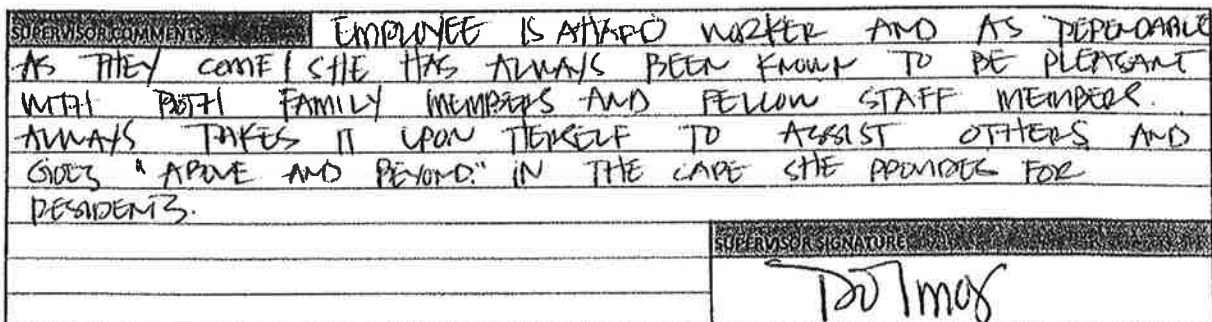 SUPERVISOR COMMENTS EMPLOYEE IS A HARD WORKER AND AS DEPENDABLE
AS THEY COME! SHE HAS ALWAYS BEEN KNOWN TO BE PLEASANT
WITH BOTH FAMILY MEMBERS AND FELLOW STAFF MEMBERS.
ALWAYS TAKES IT UPON HERSELF TO ASSIST OTHERS AND
GOES "ABOVE AND BEYOND." IN THE CARE SHE PROVIDES FOR
RESIDENTS.
SUPERVISOR SIGNATURE